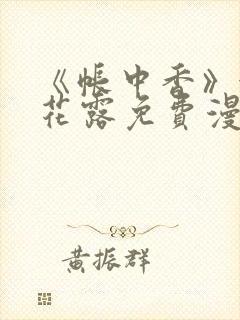 《帐中香》
花露免费漫
黄振群